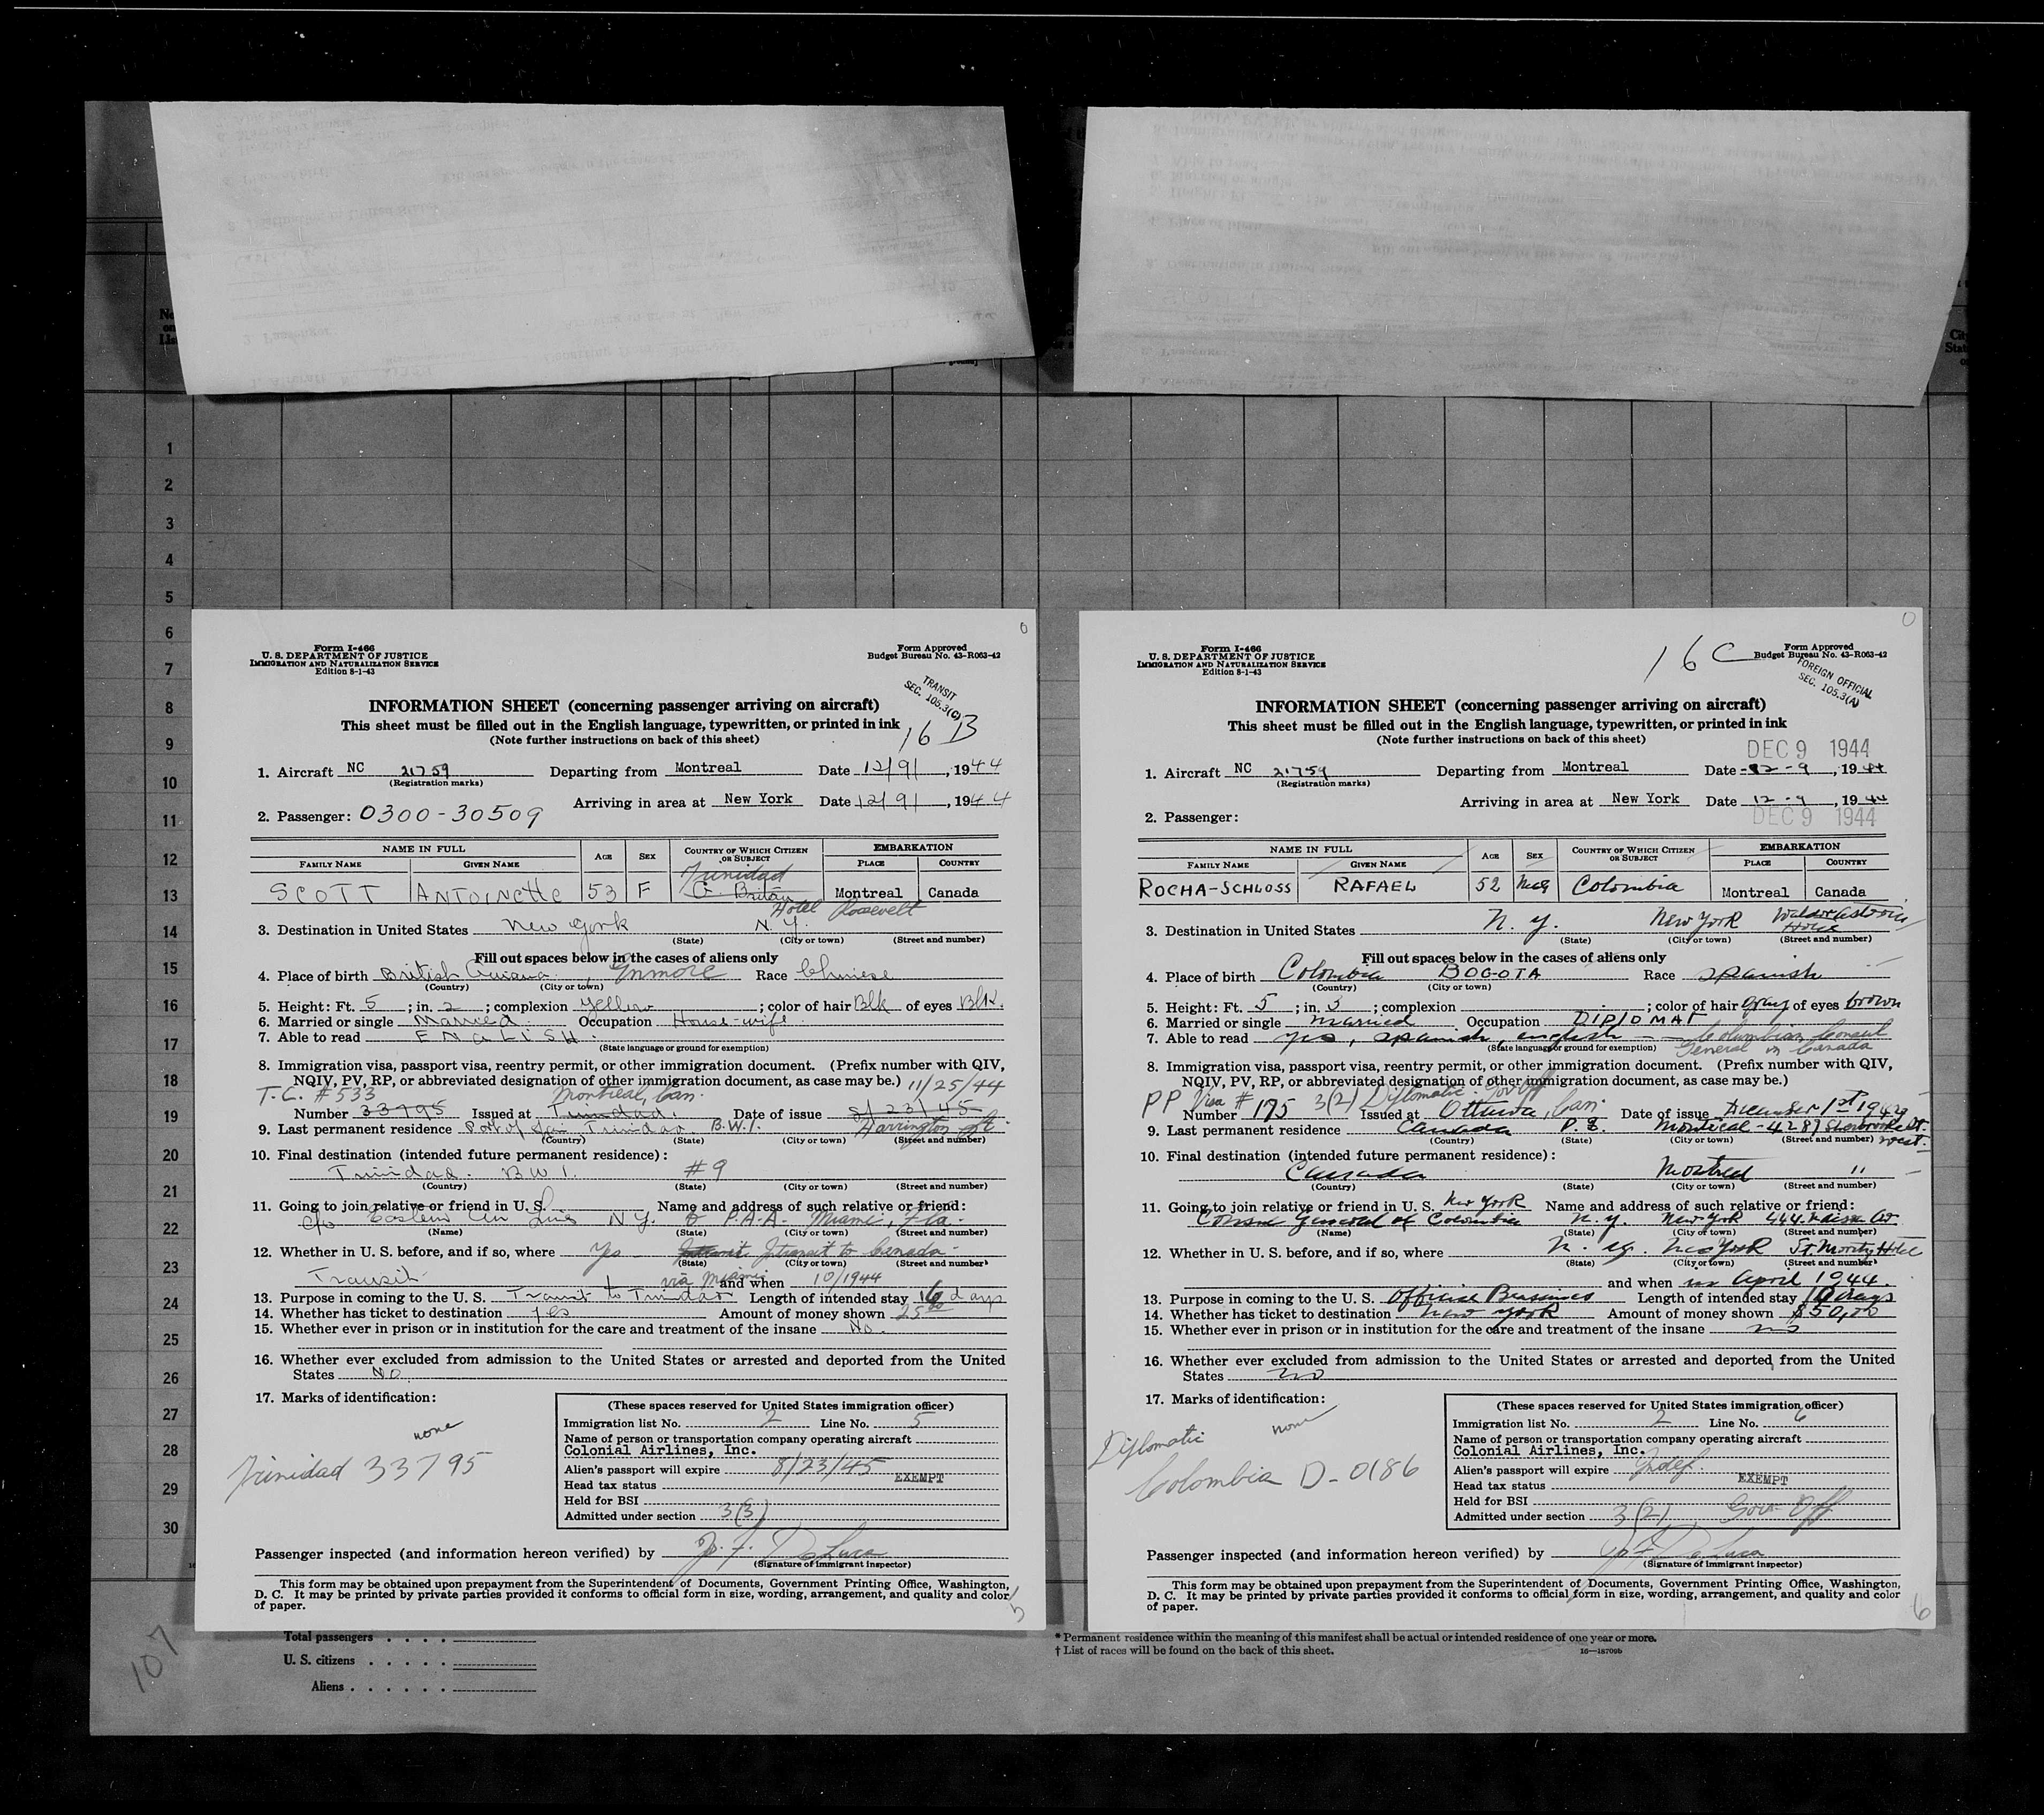 Form I-466
U. S. DEPARTMENT OF JUSTICE
IMMIGRATION AND NATURALIZATION SERVICE
Edition 8-1-43
Form Approved
Budget Bureau No. 43-R063-42
TRANSIT
SEC. 105.3(C)
16 B
INFORMATION SHEET (concerning passenger arriving on aircraft)
This sheet must be filled out in the English language, typewritten, or printed in ink
(Note further instructions on back of this sheet)
1. Aircraft NC 21759 Departing from Montreal Date 12/9/, 1944
(Registration marks)
Arriving in area at New York Date 12/9/, 1944
2. Passenger: 0300-30509
NAME IN FULL AGE SEX COUNTRY OF WHICH CITIZEN OR SUBJECT EMBARKATION
FAMILY NAME GIVEN NAME PLACE COUNTRY
Trinidad
SCOTT ANTOINETTE 53 F G. Britain Montreal Canada
Hotel Roosevelt
3. Destination in United States New York N.Y.
(State) (City or town) (Street and number)
Fill out spaces below in the cases of aliens only
4. Place of birth British Guiana, Race Chinese
(Country) (City or town)
5. Height: Ft. 5; in. 2; complexion Yellow; color of hair Blk of eyes Blk.
6. Married or single Married. Occupation House-wife
7. Able to read ENGLISH.
(State language or ground for exemption)
8. Immigration visa, passport visa, reentry permit, or other immigration document. (Prefix number with QIV,
NQIV, PV, RP, or abbreviated designation of other immigration document, as case may be.) 11/25/44
T.C. #533 Montreal, Can.
Number 33795 Issued at Trinidad. Date of issue 8/23/45
9. Last permanent residence Port of Spain Trinidad. B.W.I. Harrington St.
(Country) (State) (City or town) (Street and number)
10. Final destination (intended future permanent residence):
Trinidad. B.W.I. #9
(Country) (State) (City or town) (Street and number)
11. Going to join relative or friend in U. S. Name and address of such relative or friend:
c/o Eastern Air Lines N.Y. & P.A.A. Miami, Fla.
(Name) (State) (City or town) (Street and number)
12. Whether in U. S. before, and if so, where Yes Intransit to Canada
(State) (City or town) (Street and number)
Transit via Miami and when 10/1944
13. Purpose in coming to the U. S. Transit to Trinidad Length of intended stay 16 days
14. Whether has ticket to destination yes Amount of money shown 25.00
15. Whether ever in prison or in institution for the care and treatment of the insane No.
16. Whether ever excluded from admission to the United States or arrested and deported from the United
States No.
17. Marks of identification:
none
Trinidad 33795
(These spaces reserved for United States immigration officer)
Immigration list No. 2 Line No. 5
Name of person or transportation company operating aircraft
Colonial Airlines, Inc.
Alien's passport will expire 8/23/45
Head tax status EXEMPT
Held for BSI
Admitted under section 3(3)
Passenger inspected (and information hereon verified) by J. F. DeLuca
(Signature of immigrant inspector)
This form may be obtained upon prepayment from the Superintendent of Documents, Government Printing Office, Washington,
D. C. It may be printed by private parties provided it conforms to official form in size, wording, arrangement, and quality and color
of paper.
5
Form I-466
U. S. DEPARTMENT OF JUSTICE
IMMIGRATION AND NATURALIZATION SERVICE
Edition 8-1-43
16 C
Form Approved
Budget Bureau No. 43-R063-42
FOREIGN OFFICIAL
SEC. 105.3(A)
INFORMATION SHEET (concerning passenger arriving on aircraft)
This sheet must be filled out in the English language, typewritten, or printed in ink
(Note further instructions on back of this sheet)
DEC 9 1944
1. Aircraft NC 21759 Departing from Montreal Date 12-9, 1944
(Registration marks)
Arriving in area at New York Date 12-9, 1944
2. Passenger: DEC 9 1944
NAME IN FULL AGE SEX COUNTRY OF WHICH CITIZEN OR SUBJECT EMBARKATION
FAMILY NAME GIVEN NAME PLACE COUNTRY
ROCHA-SCHLOSS RAFAEL 52 Colombia Montreal Canada
3. Destination in United States N.Y. New York Waldorf Astoria Hotel
(State) (City or town) (Street and number)
Fill out spaces below in the cases of aliens only
4. Place of birth Colombia BOGOTA Race Spanish
(Country) (City or town)
5. Height: Ft. 5; in. 3; complexion ; color of hair gray of eyes brown
6. Married or single married. Occupation DIPLOMAT
7. Able to read yes, spanish, english - Columbian Consul
(State language or ground for exemption) General in Canada
8. Immigration visa, passport visa, reentry permit, or other immigration document. (Prefix number with QIV,
NQIV, PV, RP, or abbreviated designation of other immigration document, as case may be.)
PP Visa # 3(2) Diplomatic Gov Off
Number 175 Issued at Ottawa, Can. Date of issue December 1st 1942
9. Last permanent residence Canada P.Q. Montreal - 4287 Sherbrooke St. west.
(Country) (State) (City or town) (Street and number)
10. Final destination (intended future permanent residence):
Canada Montreal "
(Country) (State) (City or town) (Street and number)
11. Going to join relative or friend in U. S. New York Name and address of such relative or friend:
Consul General of Colombia N.Y. New York 444 Madison Av.
(Name) (State) (City or town) (Street and number)
12. Whether in U. S. before, and if so, where N.Y. New York St Moritz Hotel
(State) (City or town) (Street and number)
and when in April 1944.
13. Purpose in coming to the U. S. Official Bussines Length of intended stay 10 days
14. Whether has ticket to destination New York Amount of money shown $50,00
15. Whether ever in prison or in institution for the care and treatment of the insane no
16. Whether ever excluded from admission to the United States or arrested and deported from the United
States no
17. Marks of identification:
none
Diplomatic
Colombia D-0186
(These spaces reserved for United States immigration officer)
Immigration list No. 2 Line No. 6
Name of person or transportation company operating aircraft
Colonial Airlines, Inc.
Alien's passport will expire Indef.
Head tax status EXEMPT
Held for BSI
Admitted under section 3(2) Gov Off
Passenger inspected (and information hereon verified) by J. F. DeLuca
(Signature of immigrant inspector)
This form may be obtained upon prepayment from the Superintendent of Documents, Government Printing Office, Washington,
D. C. It may be printed by private parties provided it conforms to official form in size, wording, arrangement, and quality and color
of paper.
6
1
2
3
4
5
6
7
8
9
10
11
12
13
14
15
16
17
18
19
20
21
22
23
24
25
26
27
28
29
30
107
Total passengers
U. S. citizens
Aliens
* Permanent residence within the meaning of this manifest shall be actual or intended residence of one year or more.
† List of races will be found on the back of this sheet.